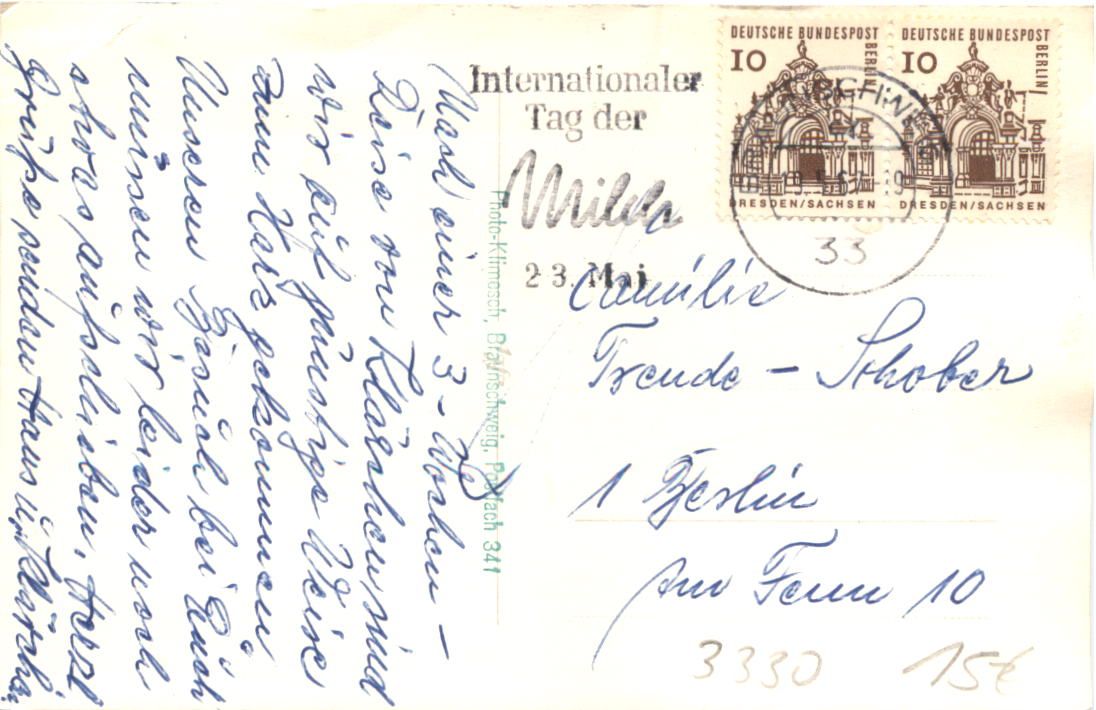 DEUTSCHE BUNDESPOST
BERLIN
10
DRESDEN/SACHSEN
DEUTSCHE BUNDESPOST
BERLIN
10
DRESDEN/SACHSEN
33
Internationaler
Tag der
Milch
23. Mai
Photo-Klimesch, Braunschweig, Postfach 341
Nach einer 3-Wochen-
Reise von Klärchen sind
wir auf günstige Weise
zum Harz gekommen
Unseren Besuch bei Euch
müssen wir leider noch
etwas aufschieben. Herzl
Grüße senden Hans u. Klärchen
Familie
Trende - Schober
1 Berlin
Am Fenn 10
3330
15€